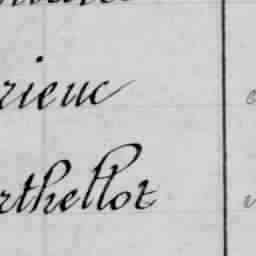 rieuc
rthellot